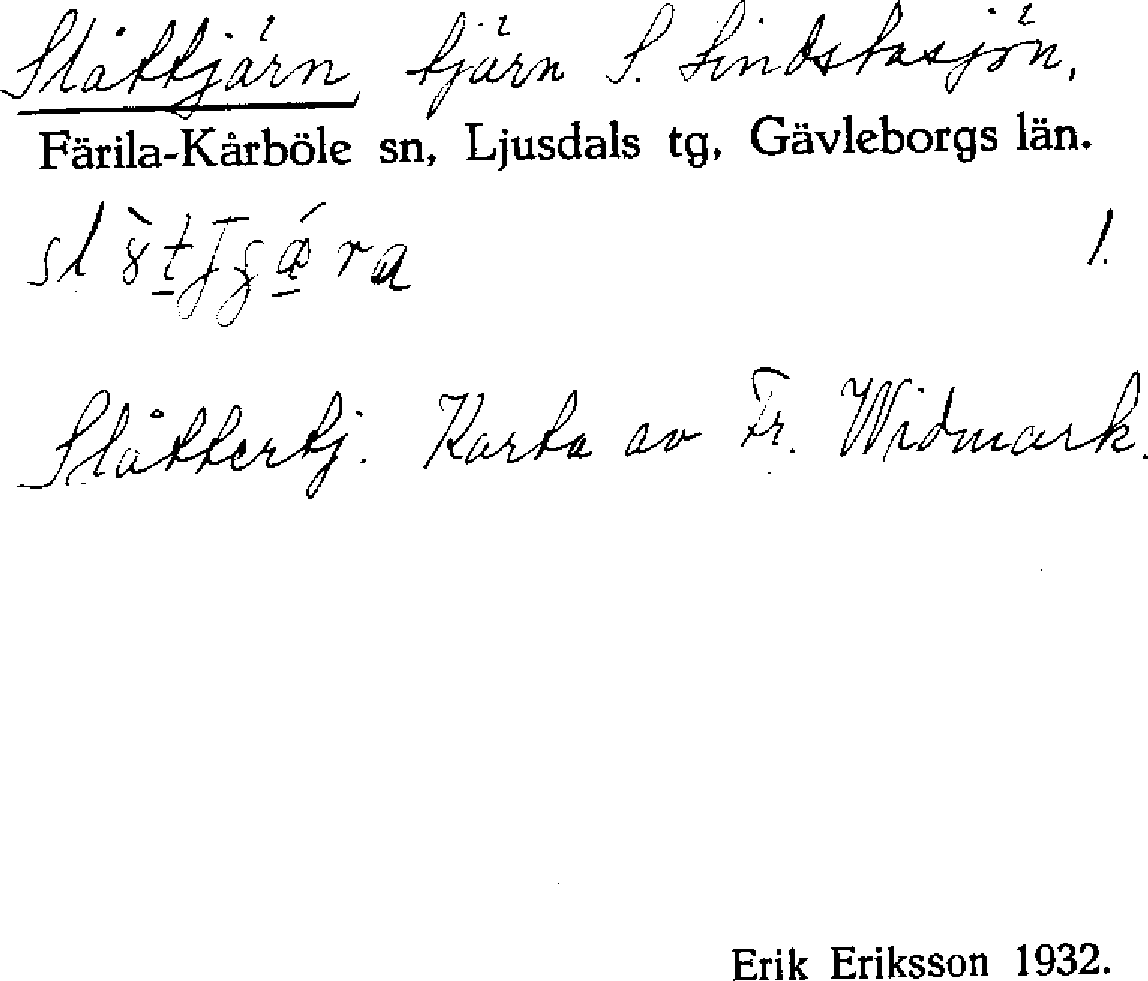 Slåttjärn tjärn S. Lindstasjön,
Färila-Kårböle sn, Ljusdals tg, Gävleborgs län.
1.
Slåttertj. Karta av Fr. Widmark.
Erik Eriksson 1932.